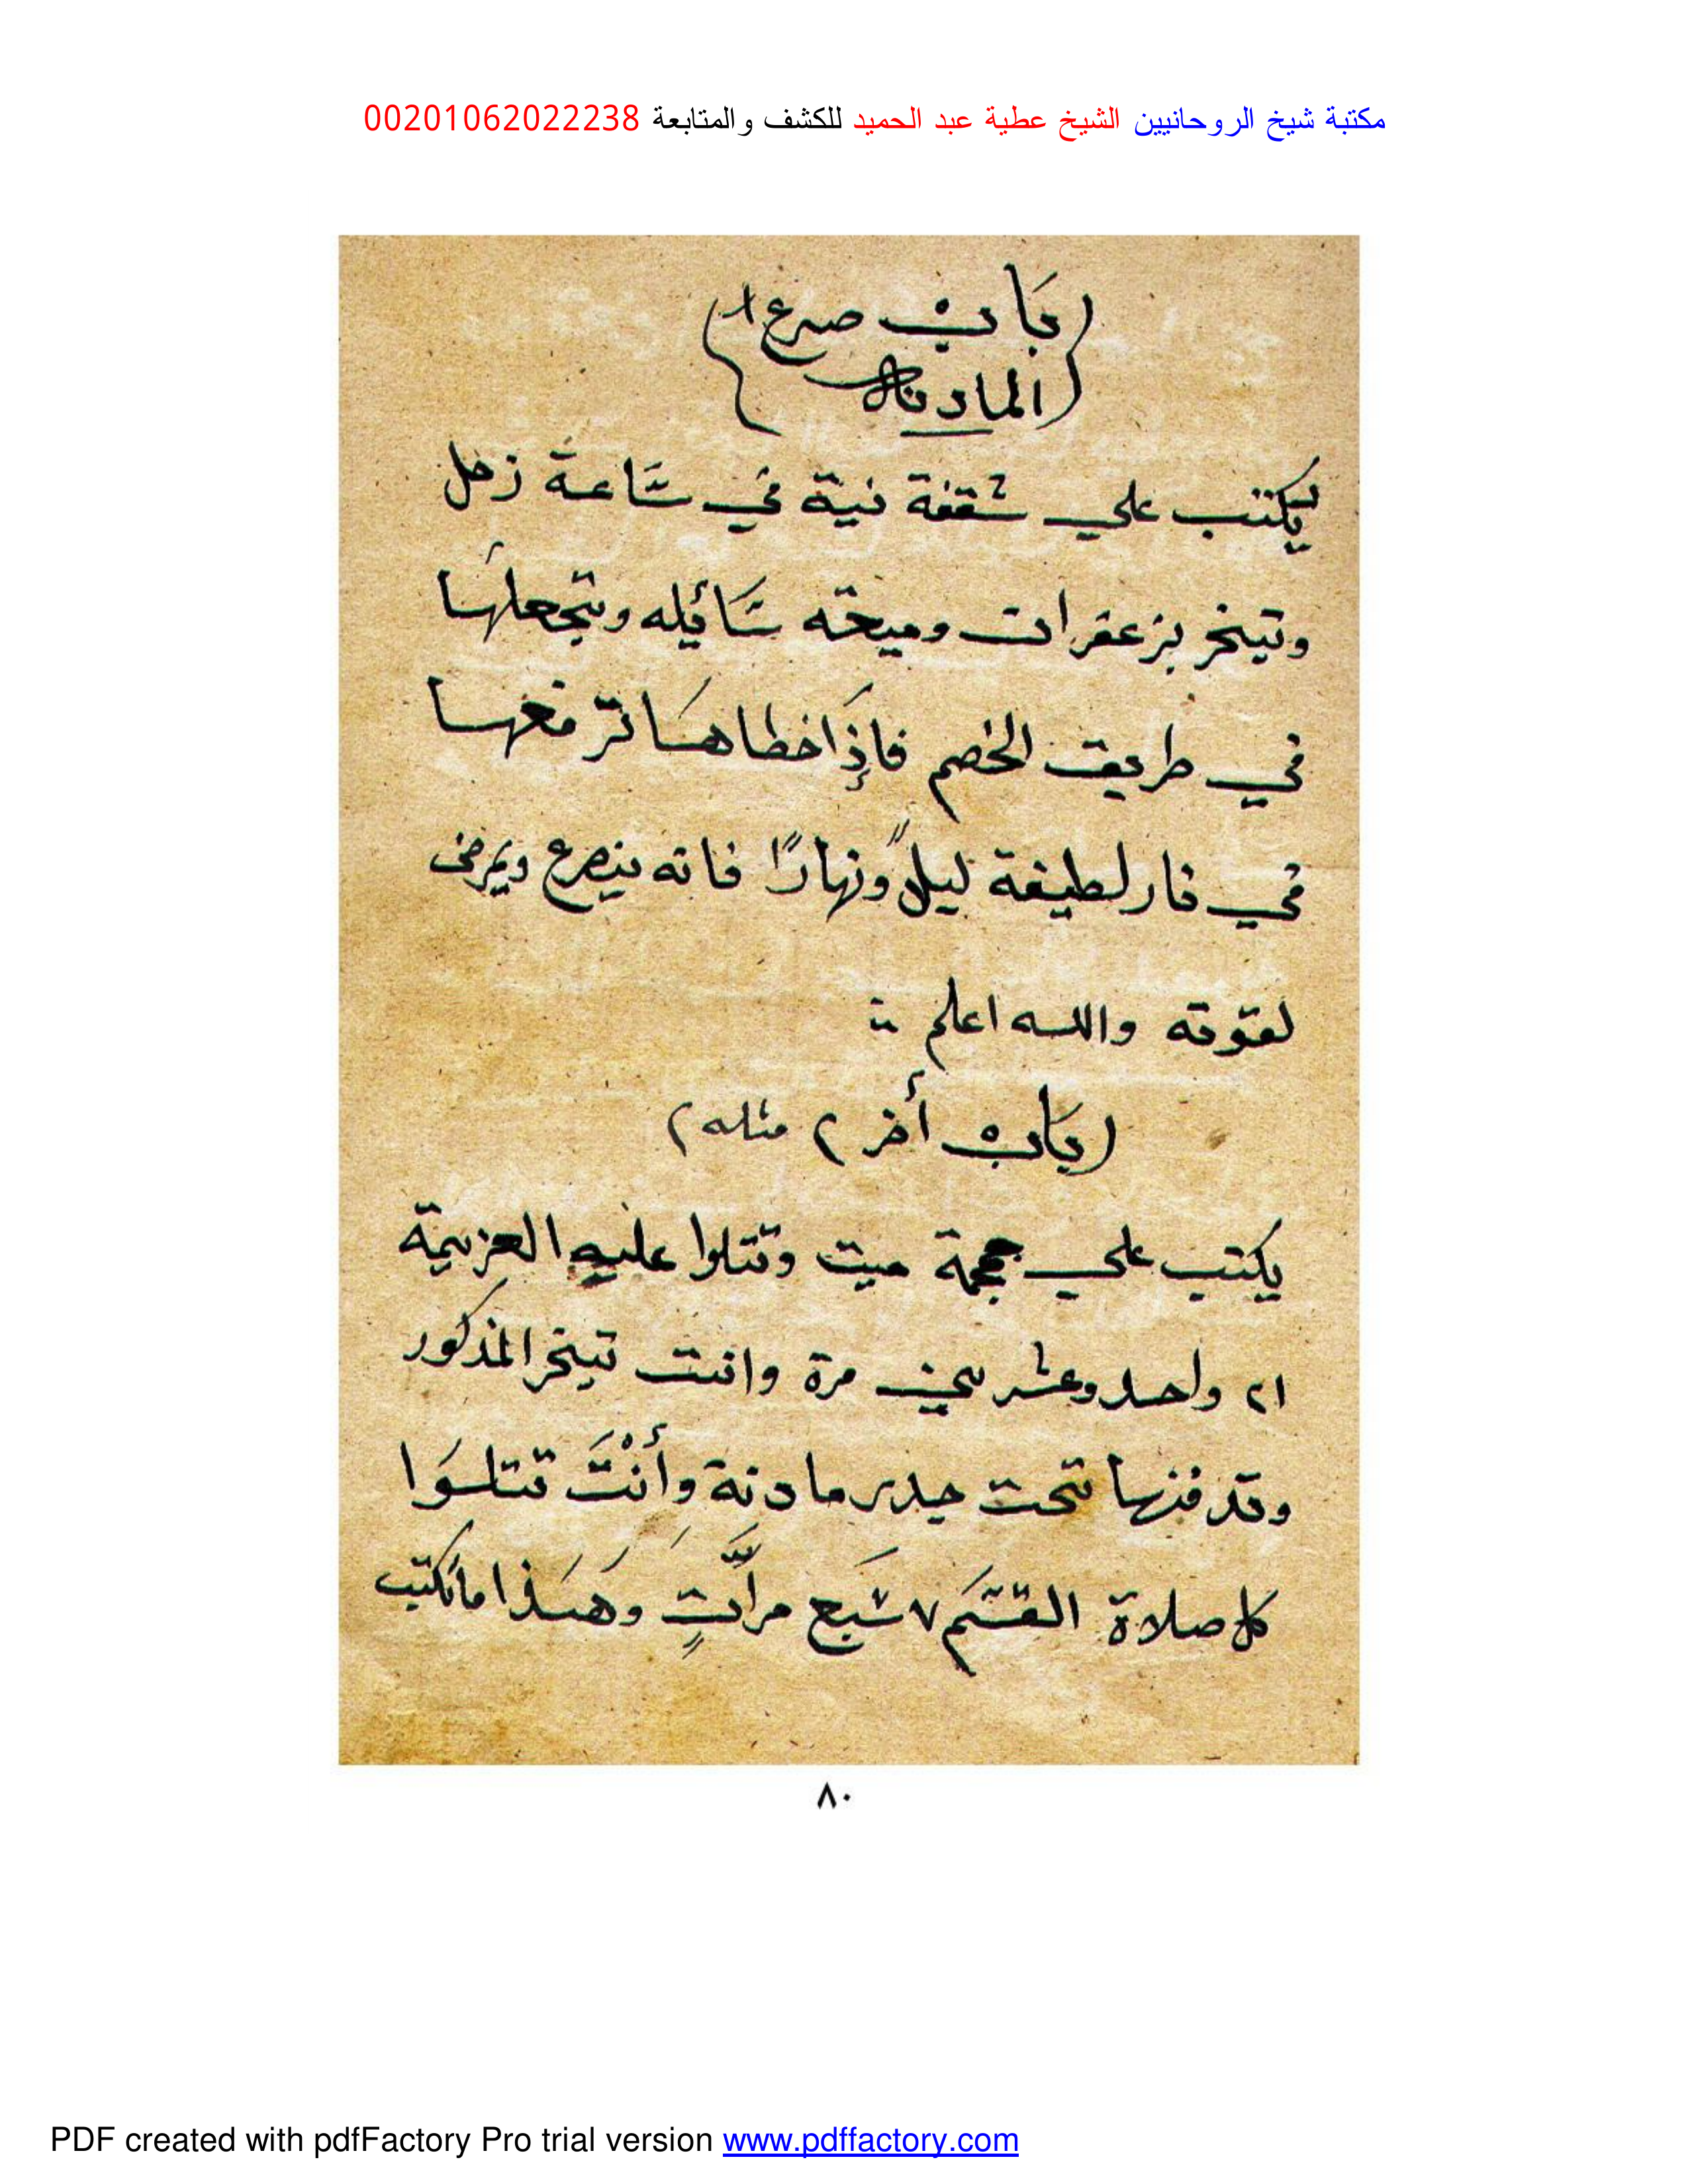 مكتبة شيخ الروحانيين الشيخ عطية عبد الحميد للكشف والمتابعة 00201062022238
(باب صرع ١
المادنة)
يكتب علي شقفة نية في ساعة زحل
وتبخر بزعفران وميعة سائله وتجعلها
في طريق الخصم فإذا خطاها ترفعها
في نار لطيفة ليلا ونهارًا فانه ينصرع ويمرض
لقوته والله اعلم
(باب أخر ٢ مثله)
يكتب علي ججمة ميت وتتلوا عليه العزيمة
٢١ واحد وعشرين مرة وانت تبخر المذكور
وتدفنها تحت جدر مادنة وأنْتَ تتلوا
كل صلاة القسم ٧ سبع مراتٍ وهذا ما تكتب
٨٠
PDF created with pdfFactory Pro trial version www.pdffactory.com